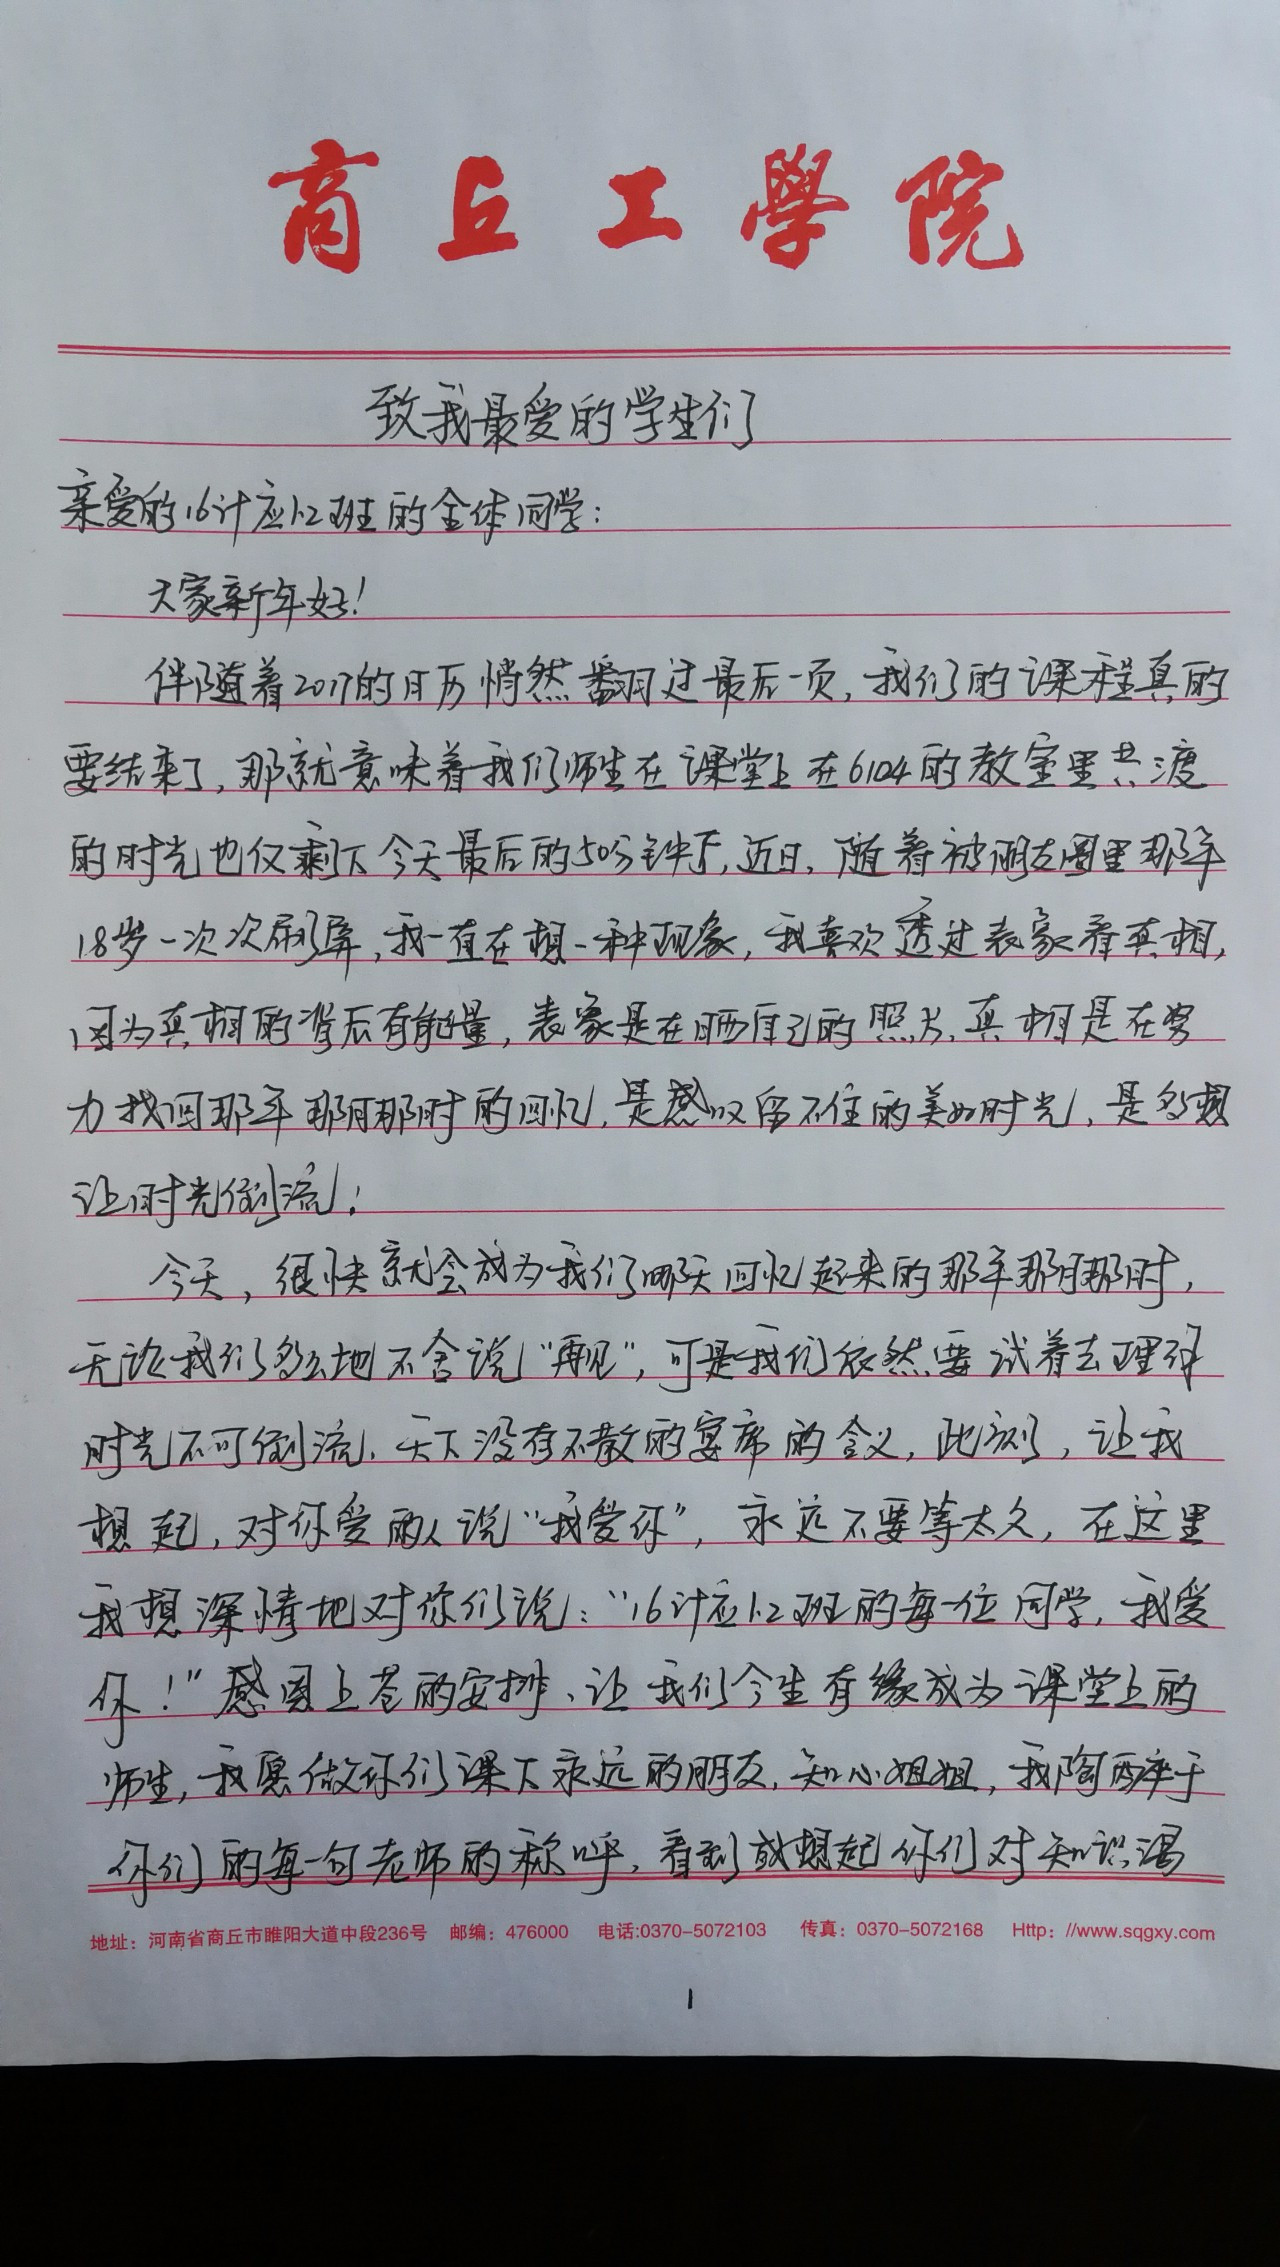 商丘工學院
致我最爱的学生们
亲爱的16计应1.2班的全体同学：
大家新年好！
伴随着2017的日历悄然翻过最后一页，我们的课程真的
要结束了，那就意味着我们师生在课堂上在6104的教室里共渡
的时光也仅剩下今天最后的50分钟了，近日，随着被朋友圈里那年
18岁一次次刷屏，我一直在想一种现象，我喜欢透过表象看真相，
因为真相的背后有能量，表象是在晒自己的照片，真相是在努
力找回那年那月那时的回忆，是感叹留不住的美好时光，是多想
让时光倒流！
今天，很快就会成为我们哪天回忆起来的那年那月那时，
无论我们多么地不舍说“再见”，可是我们依然要试着去理解
时光不可倒流、天下没有不散的宴席的含义，此刻，让我
想起，对你爱的人说“我爱你”，永远不要等太久，在这里
我想深情地对你们说：“16计应1.2班的每一位同学，我爱
你！”感恩上苍的安排、让我们今生有缘成为课堂上的
师生，我愿做你们课下永远的朋友，知心姐姐，我陶醉于
你们的每一句老师的称呼，看到或想起你们对知识渴
地址：河南省商丘市睢阳大道中段236号 邮编：476000 电话:0370-5072103 传真：0370-5072168 Http：//www.sqgxy.com
1